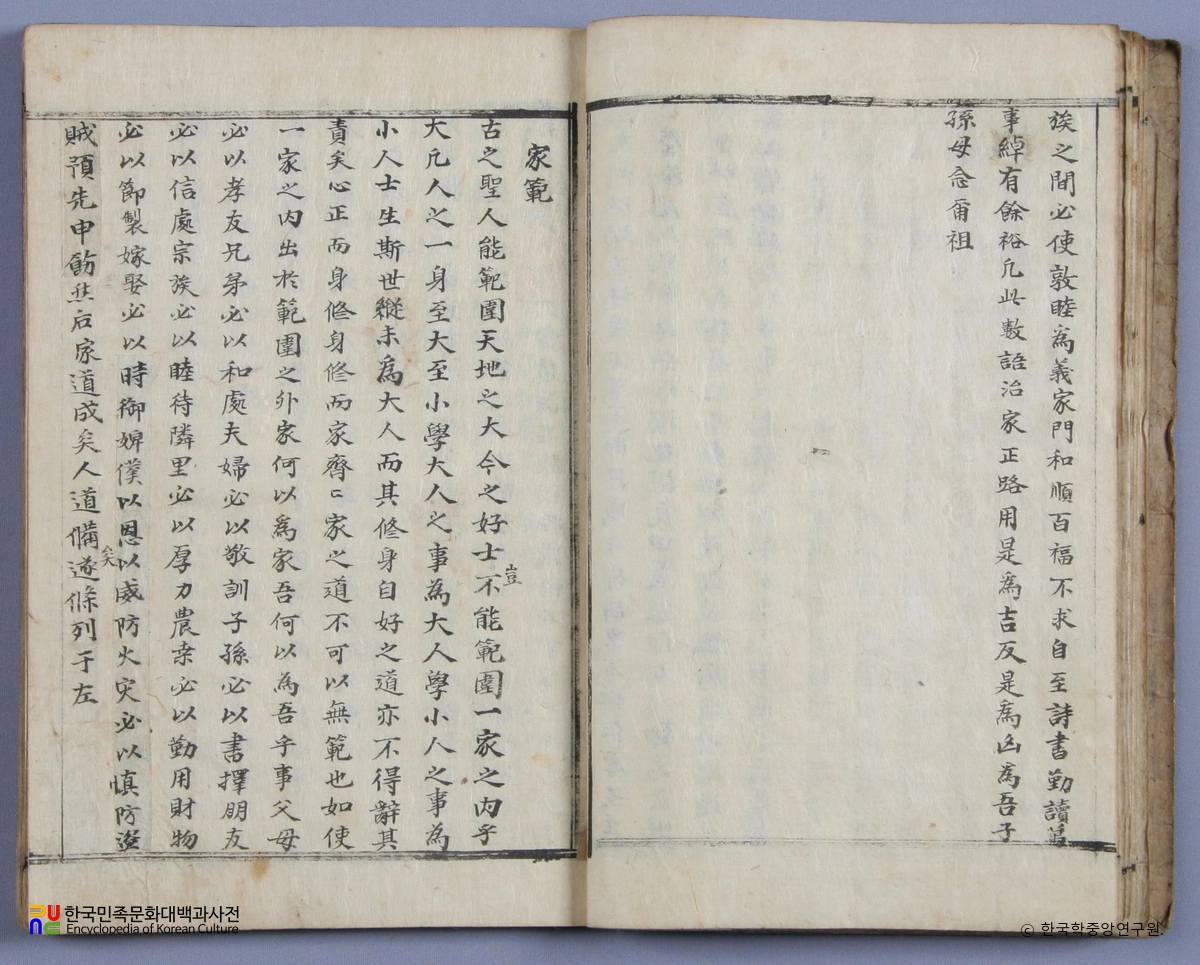 族之間必使敦睦為義家門和順百福不求自至詩書勤讀萬
事綽有餘裕凡此數語治家正路用是為吉反是為凶為吾子
孫毋忝爾祖
家範
古之聖人能範圍天地之大今之好士豈不能範圍一家之內乎
大凡人之一身至大至小學大人之事為大人學小人之事為
小人士生斯世縱未為大人而其修身自好之道亦不得辭其
責矣心正而身修身修而家齊㔾家之道不可以無範也如使
一家之內出於範圍之外家何以為家吾何以為吾乎事父母
必以孝友兄弟必以和處夫婦必以敬訓子孫必以書擇朋友
必以信處宗族必以睦待隣里必以厚力農桒必以勤用財物
必以節製嫁娶必以時御婢僕以恩以威防火灾必以愼防盜
賊預先申飭然后家道成矣人道備矣遂條列于左
한국민족문화대백과사전
Encyclopedia of Korean Culture
© 한국학중앙연구원